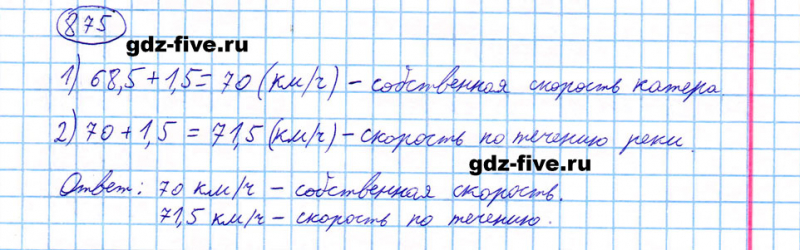 875
gdz-five.ru
1) 68,5+1,5= 70 (км/ч) - собственная скорость катера.
2) 70+1,5 = 71,5 (км/ч) - скорость по течению реки.
gdz-five.ru
Ответ: 70 км/ч - собственная скорость.
71,5 км/ч - скорость по течению.